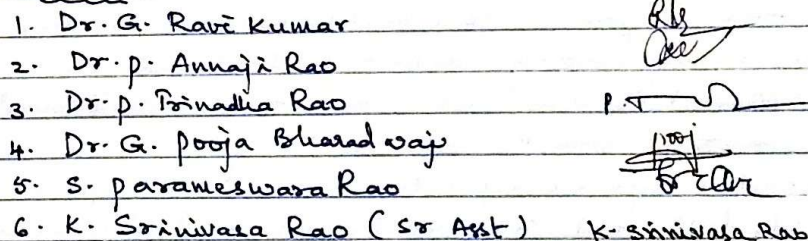 1. Dr. G. Ravi Kumar
2. Dr. P. Annaji Rao
3. Dr. P. Trinadha Rao P.
4. Dr. G. Pooja Bharadwaj Pooj
5. S. Parameswara Rao
6. K. Srinivasa Rao (Sr Asst) K. Srinivasa Rao